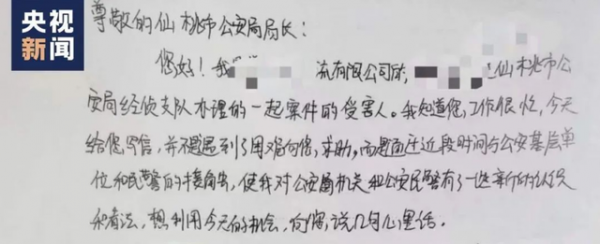 央视
新闻
尊敬的仙桃市公安局局长：
您好！我 有限公司 仙桃市公
安局经侦支队办理的一起案件的受害人。我知道您工作很忙，今天
给您写信，并不是遇到了困难向您求助，而是通过近段时间与公安基层单
位和民警的接触，使我对公安局机关和公安民警有了一些新的认识
和看法，想利用今天的机会，向您说几句心里话。